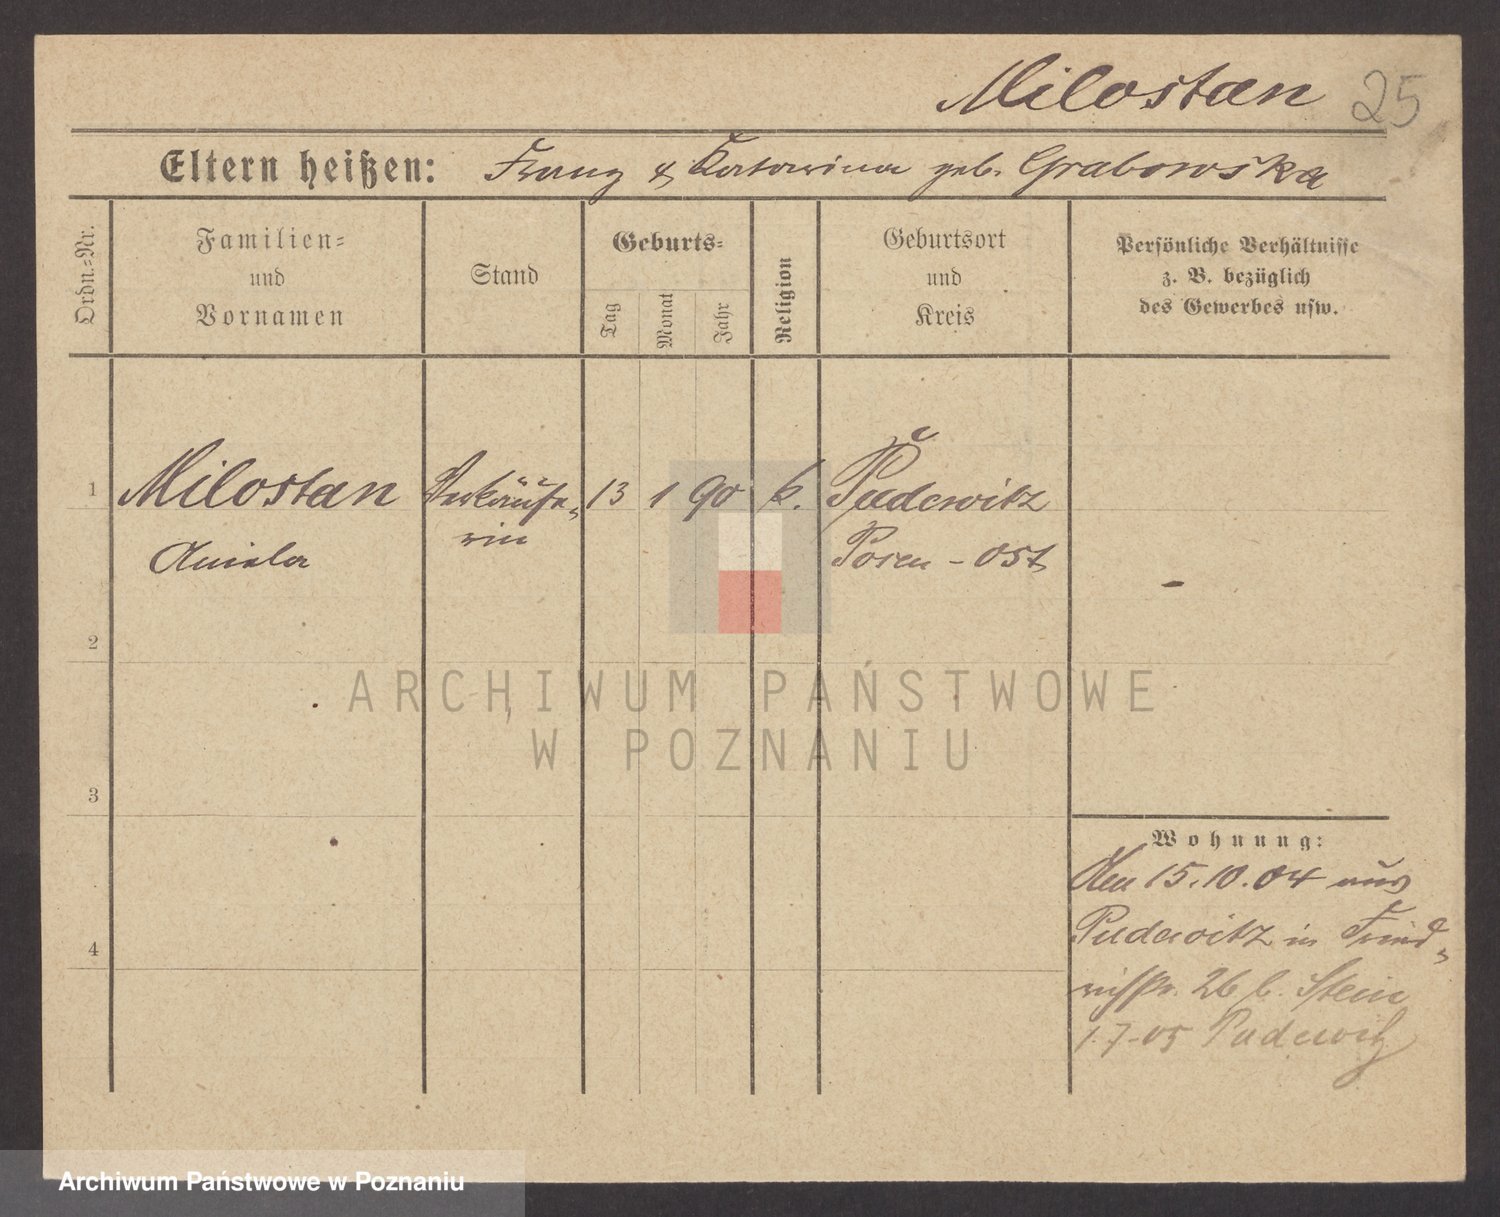 Milostan 25
Eltern heißen: Franz & Katarina geb. Grabowska
Ordn.-Nr.
Familien-
und
Vornamen
Stand
Geburts-
Tag
Monat
Jahr
Religion
Geburtsort
und
Kreis
Persönliche Verhältnisse
z. B. bezüglich
des Gewerbes usw.
1 Milostan Verkäufe- 13 1 90 k. Pudewitz
rin
Aniela Posen - Ost -
2
3
4
Wohnung:
Den 15.10.04 aus
Pudewitz in Fried-
richstr. 26 b. Stein
1.7-05 Pudewitz
ARCHIWUM PAŃSTWOWE
W POZNANIU
Archiwum Państwowe w Poznaniu